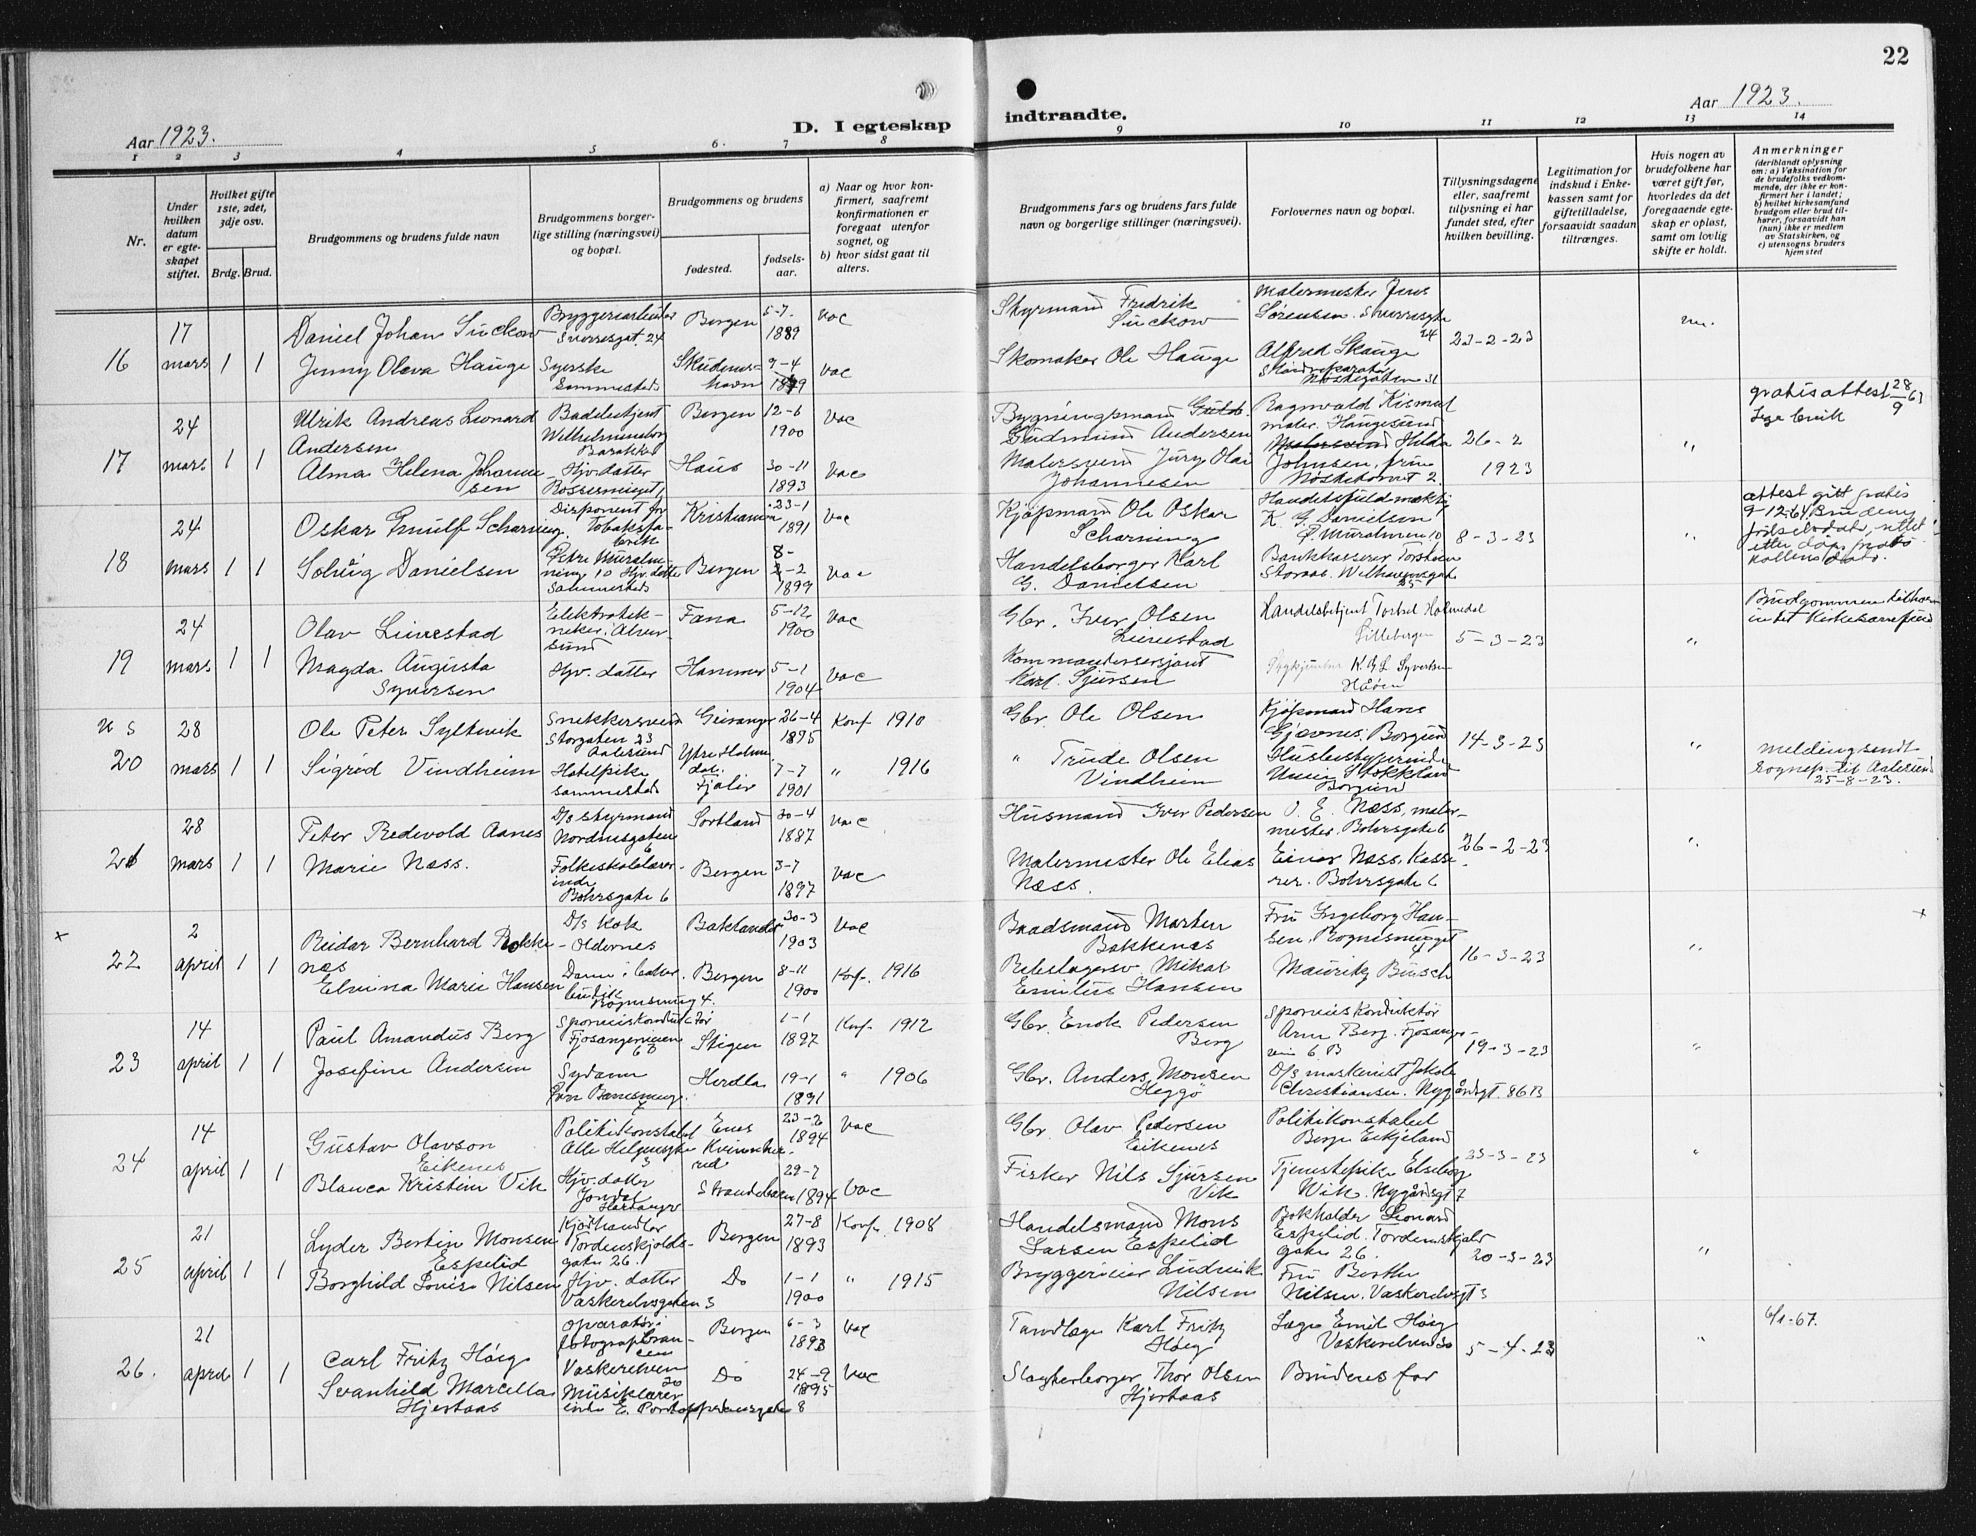 22
Aar 1923.
D. I egteskap
indtraadte.
Aar 1923.
1 2 3 4 5 6. 7 8 9 10 11 12 13 14
Nr.
Under hvilken datum er egteskapet stiftet.
Hvilket gifte 1ste, 2det, 3dje osv.
Brdg. Brud.
Brudgommens og brudens fulde navn
Brudgommens borgerlige stilling (næringsvei) og bopæl.
Brudgommens og brudens
fødested.
fødselsaar.
a) Naar og hvor konfirmert, saafremt konfirmationen er foregaat utenfor sognet, og
b) hvor sidst gaat til alters.
Brudgommens fars og brudens fars fulde navn og borgerlige stillinger (næringsvei).
Forlovernes navn og bopæl.
Tillysningsdagene eller, saafremt tillysning ei har fundet sted, efter hvilken bevilling.
Legitimation for indskud i Enkekassen samt for giftetilladelse, forsaavidt saadan tiltrænges.
Hvis nogen av brudefolkene har været gift før, hvorledes da det foregaaende egteskap er opløst, samt om lovlig skifte er holdt.
Anmerkninger
(deriblandt oplysning om: a) Vaksination for de brudefolks vedkommende, der ikke er konfirmert her i landet; b) hvilket kirkesamfund brudgom eller brud tilhører, forsaavidt han (hun) ikke er medlem av Statskirken, og c) utensogns bruders hjemsted
16 17 mars 1 1
Daniel Johan Suckow
Bryggeriarbeider Sverresgt. 24
Bergen 5-7. 1889 vac
Styrmand Fredrik Suckow
Malermester Jens Sørensen. Sverresgt. 24
23-2-23
Jenny Oleva Hauge
Syerske Sammesteds
Skudeneshavn 9-4 vac
Skomaker Ole Hauge
Alfred Skauge
Nøstegaten 31
17 24 mars 1 1
Ulrik Andreas Leonard Andersen
Badebetjent
Bergen 12-6 1900 vac
Bygningsmand Gudmund Andersen
Ragnvald Kismul maler. Haugesund
26-2 1923
gratis attest 28/9 63
Alma Helena Johannesen
Hjv. datter
Haus 30-11 1893 vac
Malersvend Jørg Olai Johannesen
Hilda Johnsen, frue
18 24 mars 1 1
Oskar Gnulf Scharning.
Disponent for Tobaksfabrik
Kristiania 23-1 1891 vac
Kjøpmand Ole Oskar Scharning
Handelsfuldmæktig K. G. Danielsen Ø. Muralmen. 10
8-3-23
attest gitt gratis 9-12-64
Solveig Danielsen
Øvre Muralmenning 10 Hjv. datter Sammesteds
Bergen 8-2 1899 vac
Handelsborger Karl G. Danielsen
Bankkasserer Torstein Storaas. Wilhavensgate 25
19 24 mars 1 1
Olav Linnestad
Elektrotekniker. Alversund
Fana 5-12 1900 vac
Gbr. Iver Olsen Linnestad
Handelsbetjent Torkel Holmedal
5-3-23
Brudgommen tilhører
Magda Augusta Syversen
Hjv. datter
Hammer 5-1 1904 vac
Kommandersersjant Karl Sjursen
K. G. L. Syversen
us 28
20 mars 1 1
Ole Peter Syltevik
Snekkersvend Storgaten 23 Aalesund
Geiranger 26-4 1895 Konf. 1910
Gbr. Ole Olsen
Kjøpmand Hans Gjævnes. Borgund
14-3-23
melding sendt sognep. til Aalesund 25-8-23.
Sigrid Vindheim
Hotelpike sammesteds
Ytre Holmedal. Fjaler 7-7 1901 „ 1916
„ Trude Olsen Vindheim
21 28 mars 1 1
Peter Redevold Aanes
D/s Styrmand Nordnesgaten 6
Sortland 30-4 1887 vac
Husmand Iver Pedersen
O. E. Næss, malermester. Bohrsgate 6
26-2-23
Marie Næss.
Folkeskolelærerinde Bohrsgate 6
Bergen 3-7 1897 vac
Malermester Ole Elias Næss.
Einar Næss, Kasserer. Bohrsgate 6
x
22 2 april 1 1
Reidar Bernhard Bokkenæs
D/s Kok
30-3 1903 vac
Baadsmand Morten Bakkenes
Fru Ingeborg Hansen.
16-3-23
x
Elmina Marie Hansen
Bergen 8-11 1900 Konf. 1916
Rebslagersv. Mikal Emilius Hansen
Mauritz Busch
23 14 april 1 1
Paul Amandus Berg
Sporveiskonduktør Fjøsangerveien 6B
Stigen 1-1 1897 Konf. 1912
Gbr. Enok Pedersen Berg
Sporveiskonduktør Arne Berg. Fjøsangervei 6. B
19-3-23
Josefine Andersen
Sydame
Herdla 19-1 1891 „ 1906
Gbr. Anders Monsen Heggø
D/s maskinist Jakob Christiansen. Nygårdsgt. 86 B
24 14 april 1 1
Gustav Olavson Eikenes
Politikonstabel Alle Helgensgt. 3
Enes Kvinnherred 23-2 1894 vac
Gbr. Olav Pedersen Eikenes
Politikonstabel Berge Eikjeland
23-3-23
Blanca Kristine Vik
Hjv. datter Jondal Hardanger
Strandebarm 29-7 1894 vac
Fisker Nils Sjursen Vik
Tjenestepike Elseborg Wik. Nygårdsgt 7
25 21 april 1 1
Lyder Bertin Monsen Espelid
Kjødhandler Tordenskjoldsgate 26.
Bergen 27-8 1893 Konf. 1908
Handelsmand Mons Larsen Espelid
Bokholder Leonard Espelid. Tordenskjoldsgate 26.
20-3-23
Borghild Lovise Nilsen
Hjv. datter Vaskerelvsgaten 3
Do 1-1 1900 „ 1915
Bryggerieier Ludvik Nilsen
Fru Berthe Nilsen. Vaskerelvsgt 3
26. 21 april 1 1
Carl Fritz Høeg
Vaskerelven 30
Bergen 6-3 1893 vac
Tandlæge Karl Fritz Høeg
Læge Emil Høeg Vaskerelven 30
5-4-23
6/1-67.
Svanhild Marcella Hjertaas
Musiklærerinde E. Pontoppidansgate 8
Do 24-9 1895 vac
Slagterborger Thor Olsen Hjertaas
Brudens far